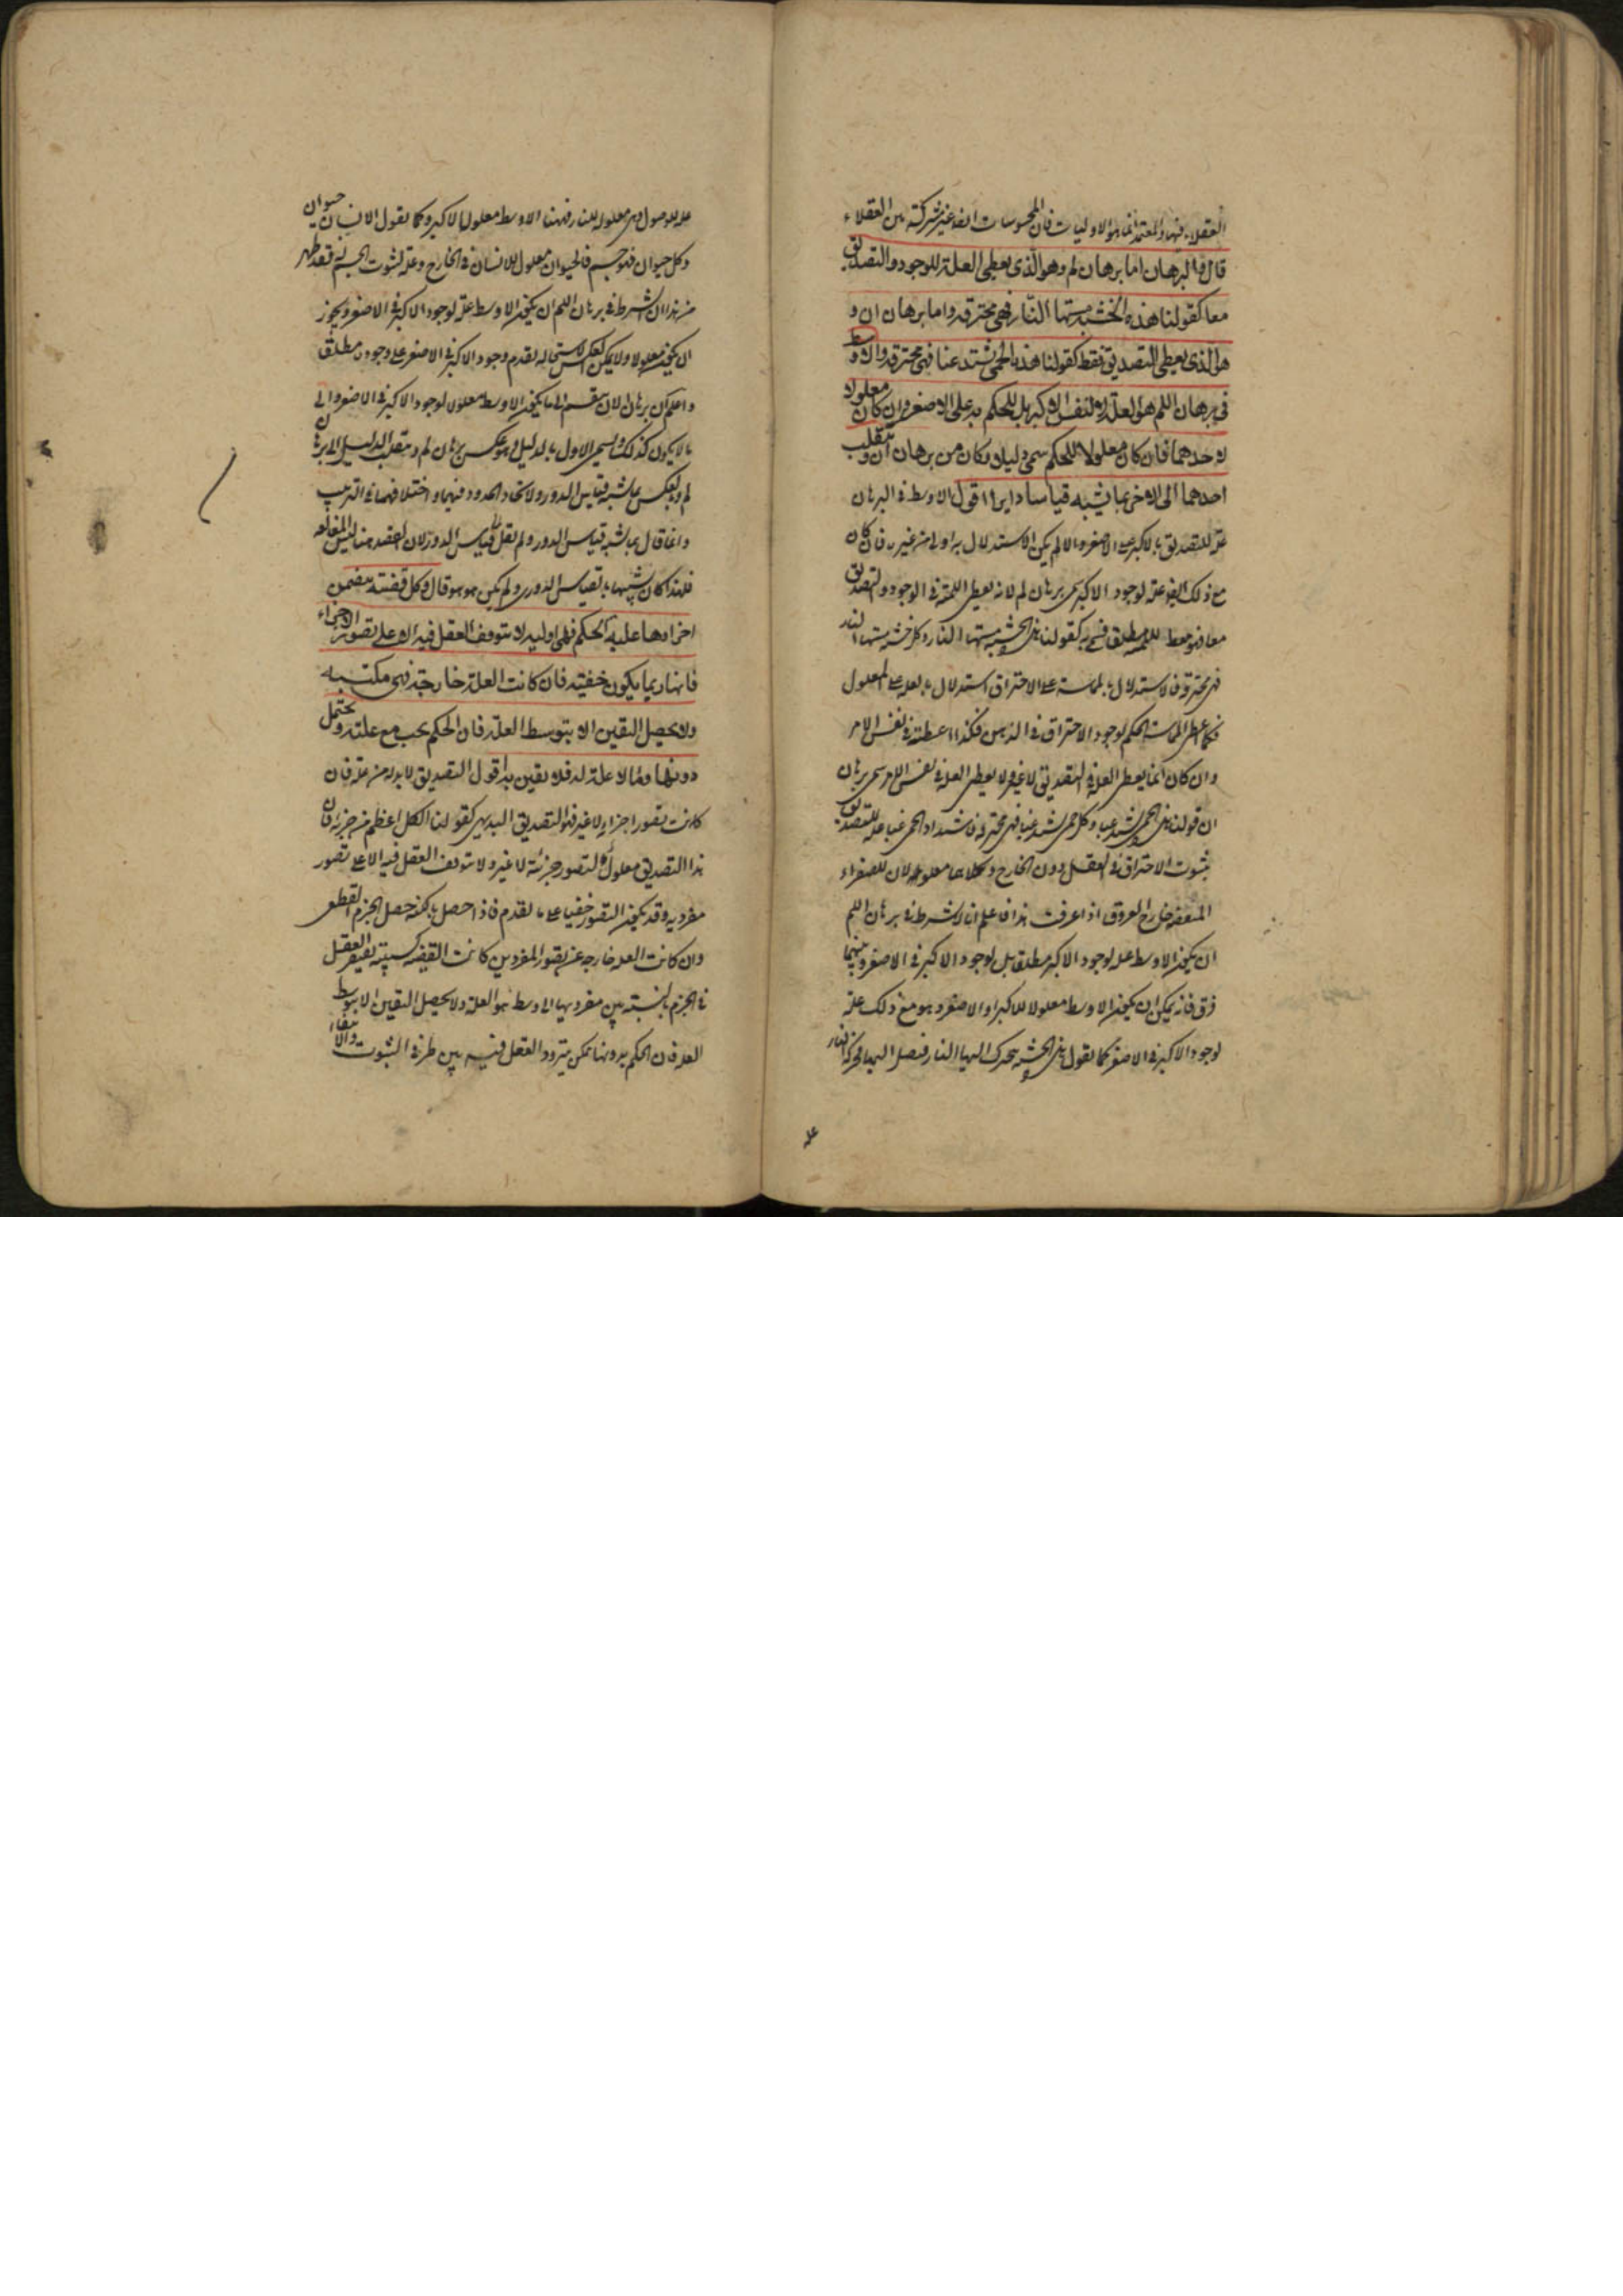 العقلاء فيها والمعتمد انما هو الاوليات فان المحسوسات ايضا غير مشتركة بين العقلاء
قال فالبرهان اما برهان لم وهو الذي يعطي العلة للوجود والتصديق
معا كقولنا هذه الخشبة مستها النار فهي محترقة واما برهان ان و
هو الذي يعطي التصديق فقط كقولنا هذه الحمى تشتد غبا فهي محترقة والاوسط
في برهان اللم هو العلة لا لنفس الاكبر بل للحكم به على الاصغر وان كان معلولا
لاحدهما فان كان معلولا للحكم سمي دليلا وكان من برهان ان وينقلب
احدهما الى الاخر بما يشبه قياسا دايرا اقول الاوسط في البرهان
علة للتصديق بالاكبر على الاصغر والا لم يكن الاستدلال به اولى من غيره فان كان
مع ذلك ايضا علة لوجود الاكبر سمي برهان لم لانه يعطي اللمية في الوجود والتصديق
معا فهو معط للمية مطلقا فسمي به كقولنا هذه الخشبة مستها النار وكل خشبة مستها النار
فهي محترقة فالاستدلال بالمماسة على الاحتراق استدلال بالعلة على المعلول
فكما اعطى المماسة الحكم لوجود الاحتراق في الذهن فكذا اعطته في نفس الامر
وان كان انما يعطي العلة في التصديق لا غير ولا يعطي العلة في نفس الامر سمي برهان
ان كقولنا هذه الحمى تشتد غبا وكل حمى تشتد غبا فهي محترقة فاشتداد الحمى غبا علة للتصديق
بثبوت الاحتراق في العقل دون الخارج وكلاهما معلولان للصفراء
المتعفنة خارج العروق اذا عرفت هذا فاعلم انه لا يشترط في برهان اللم
ان يكون الاوسط علة لوجود الاكبر مطلقا بل لوجود الاكبر في الاصغر وبينهما
فرق فانه يمكن ان يكون الاوسط معلولا للاكبر او الاصغر وهو مع ذلك علة
لوجود الاكبر في الاصغر كما نقول هذه الخشبة تتحرك اليها النار فتصل اليها فحركة النار
علة
علة للوصول وهي معلولة للنار فههنا الاوسط معلول الاكبر وكما نقول الانسان حيوان
وكل حيوان فهو جسم فالحيوان معلول للانسان في الخارج وعلة لثبوت الجسم له فقد ظهر
من هذا ان الشرط في برهان اللم ان يكون الاوسط علة لوجود الاكبر في الاصغر ويجوز
ان يكون معلولا ولا يمكن العكس لاستحالة تقدم وجود الاكبر في الاصغر على وجوده مطلقا
واعلم ان برهان الان ينقسم الى ما يكون الاوسط معلولا لوجود الاكبر في الاصغر والى
ما لا يكون كذلك ويسمى الاول بالدليل وهو عكس برهان لم وينقلب الدليل الى برهان
لم وبالعكس بما يشبه قياس الدور ولاتحاد الحدود فيهما واختلافهما في الترتيب
وانما قال بما يشبه قياس الدور ولم يقل بقياس الدور لان القصد هنا ليس المغالطة
فلهذا كان شبيها بالقياس الدوري ولم يكن هو هو قال وكل قضية يتضمن
اجزاوها علية الحكم فهي اولية لا يتوقف العقل فيه الا على تصور الاجزاء
فانها ربما يكون خفية فان كانت العلة خارجة فهي مكتسبة
ولا يحصل اليقين الا بتوسط العلة فان الحكم يجب مع علته ويحتمل
دونها وما لا علة له فلا يقين به اقول التصديق لا بد له من علة فان
كانت تصور اجزايه لا غير فهو التصديق البديهي كقولنا الكل اعظم من جزئه فان
هذا التصديق معلول لتصور جزئيه لا غير ولا يتوقف العقل فيه الا على تصور
مفرديه وقد يكون التصور خفيا على ما تقدم فاذا حصل بالكنه حصل الجزم القطعي
وان كانت العلة خارجة عن تصور المفردين كانت القضية كسبية يفتقر العقل
في الجزم بالنسبة بين مفرديها الى وسط هو العلة ولا يحصل اليقين الا بتوسط
العلة فان الحكم بدونها ممكن يتردد العقل فيه بين طرفي الثبوت والانتفاء